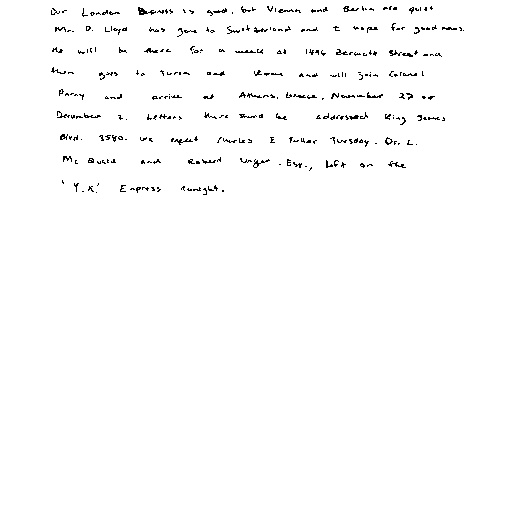 Our London Business is good, but Vienna and Berlin are quiet
Mr. D. Lloyd has gone to Switzerland and I hope for good news.
He will be there for a week at 1496 Zermatt Street and
then goes to Turin and Rome and will join Colonel
Parry and arrive at Athens, Greece, November 27 or
December 2. Letters there should be addressed King James
Blvd. 3580. We expect Charles E Fuller Tuesday. Dr. L.
Mc Quaid and Robert Unger, Esq., left on the
'Y.X.' Express tonight.